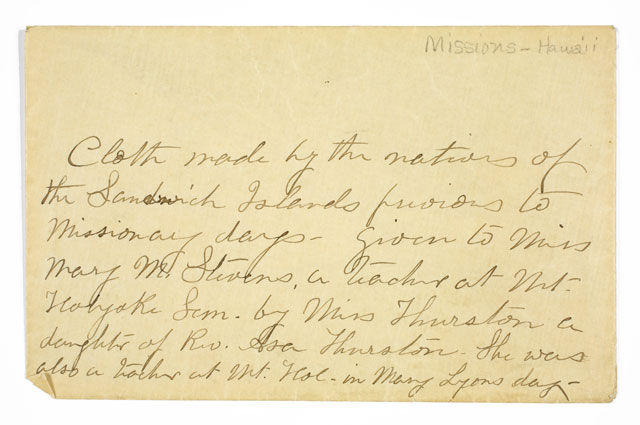 Missions - Hawaii
Cloth made by the natives of
the Sandwich Islands previous to
Missionary days - Given to Miss
Mary M. Stevens, a teacher at Mt.
Holyoke Sem. by Miss Thurston a
daughter of Rev. Asa Thurston. She was
also a teacher at Mt. Hol - in Mary Lyons day -